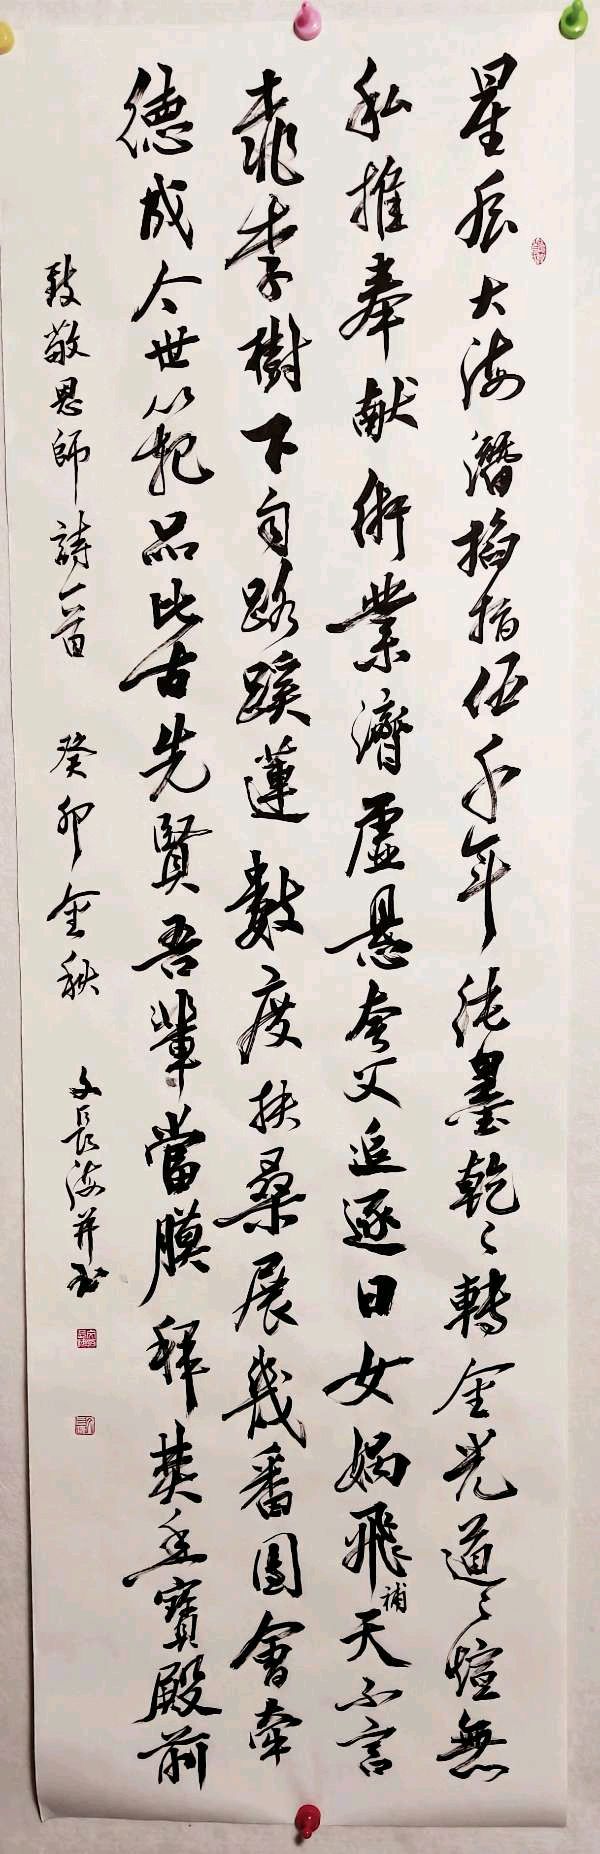 星辰大海潛掐指伍千年純墨乾〻轉金光道〻煊無
私推奉献術業濟虛懸夸父追逐日女媧飛天不言
補
桃李樹下自路蹊蓮數度扶桑展幾番團會牽
德成今世範品比古先賢吾輩當膜拜焚香寶殿前
致敬恩師詩一首 癸卯金秋 文長海并书